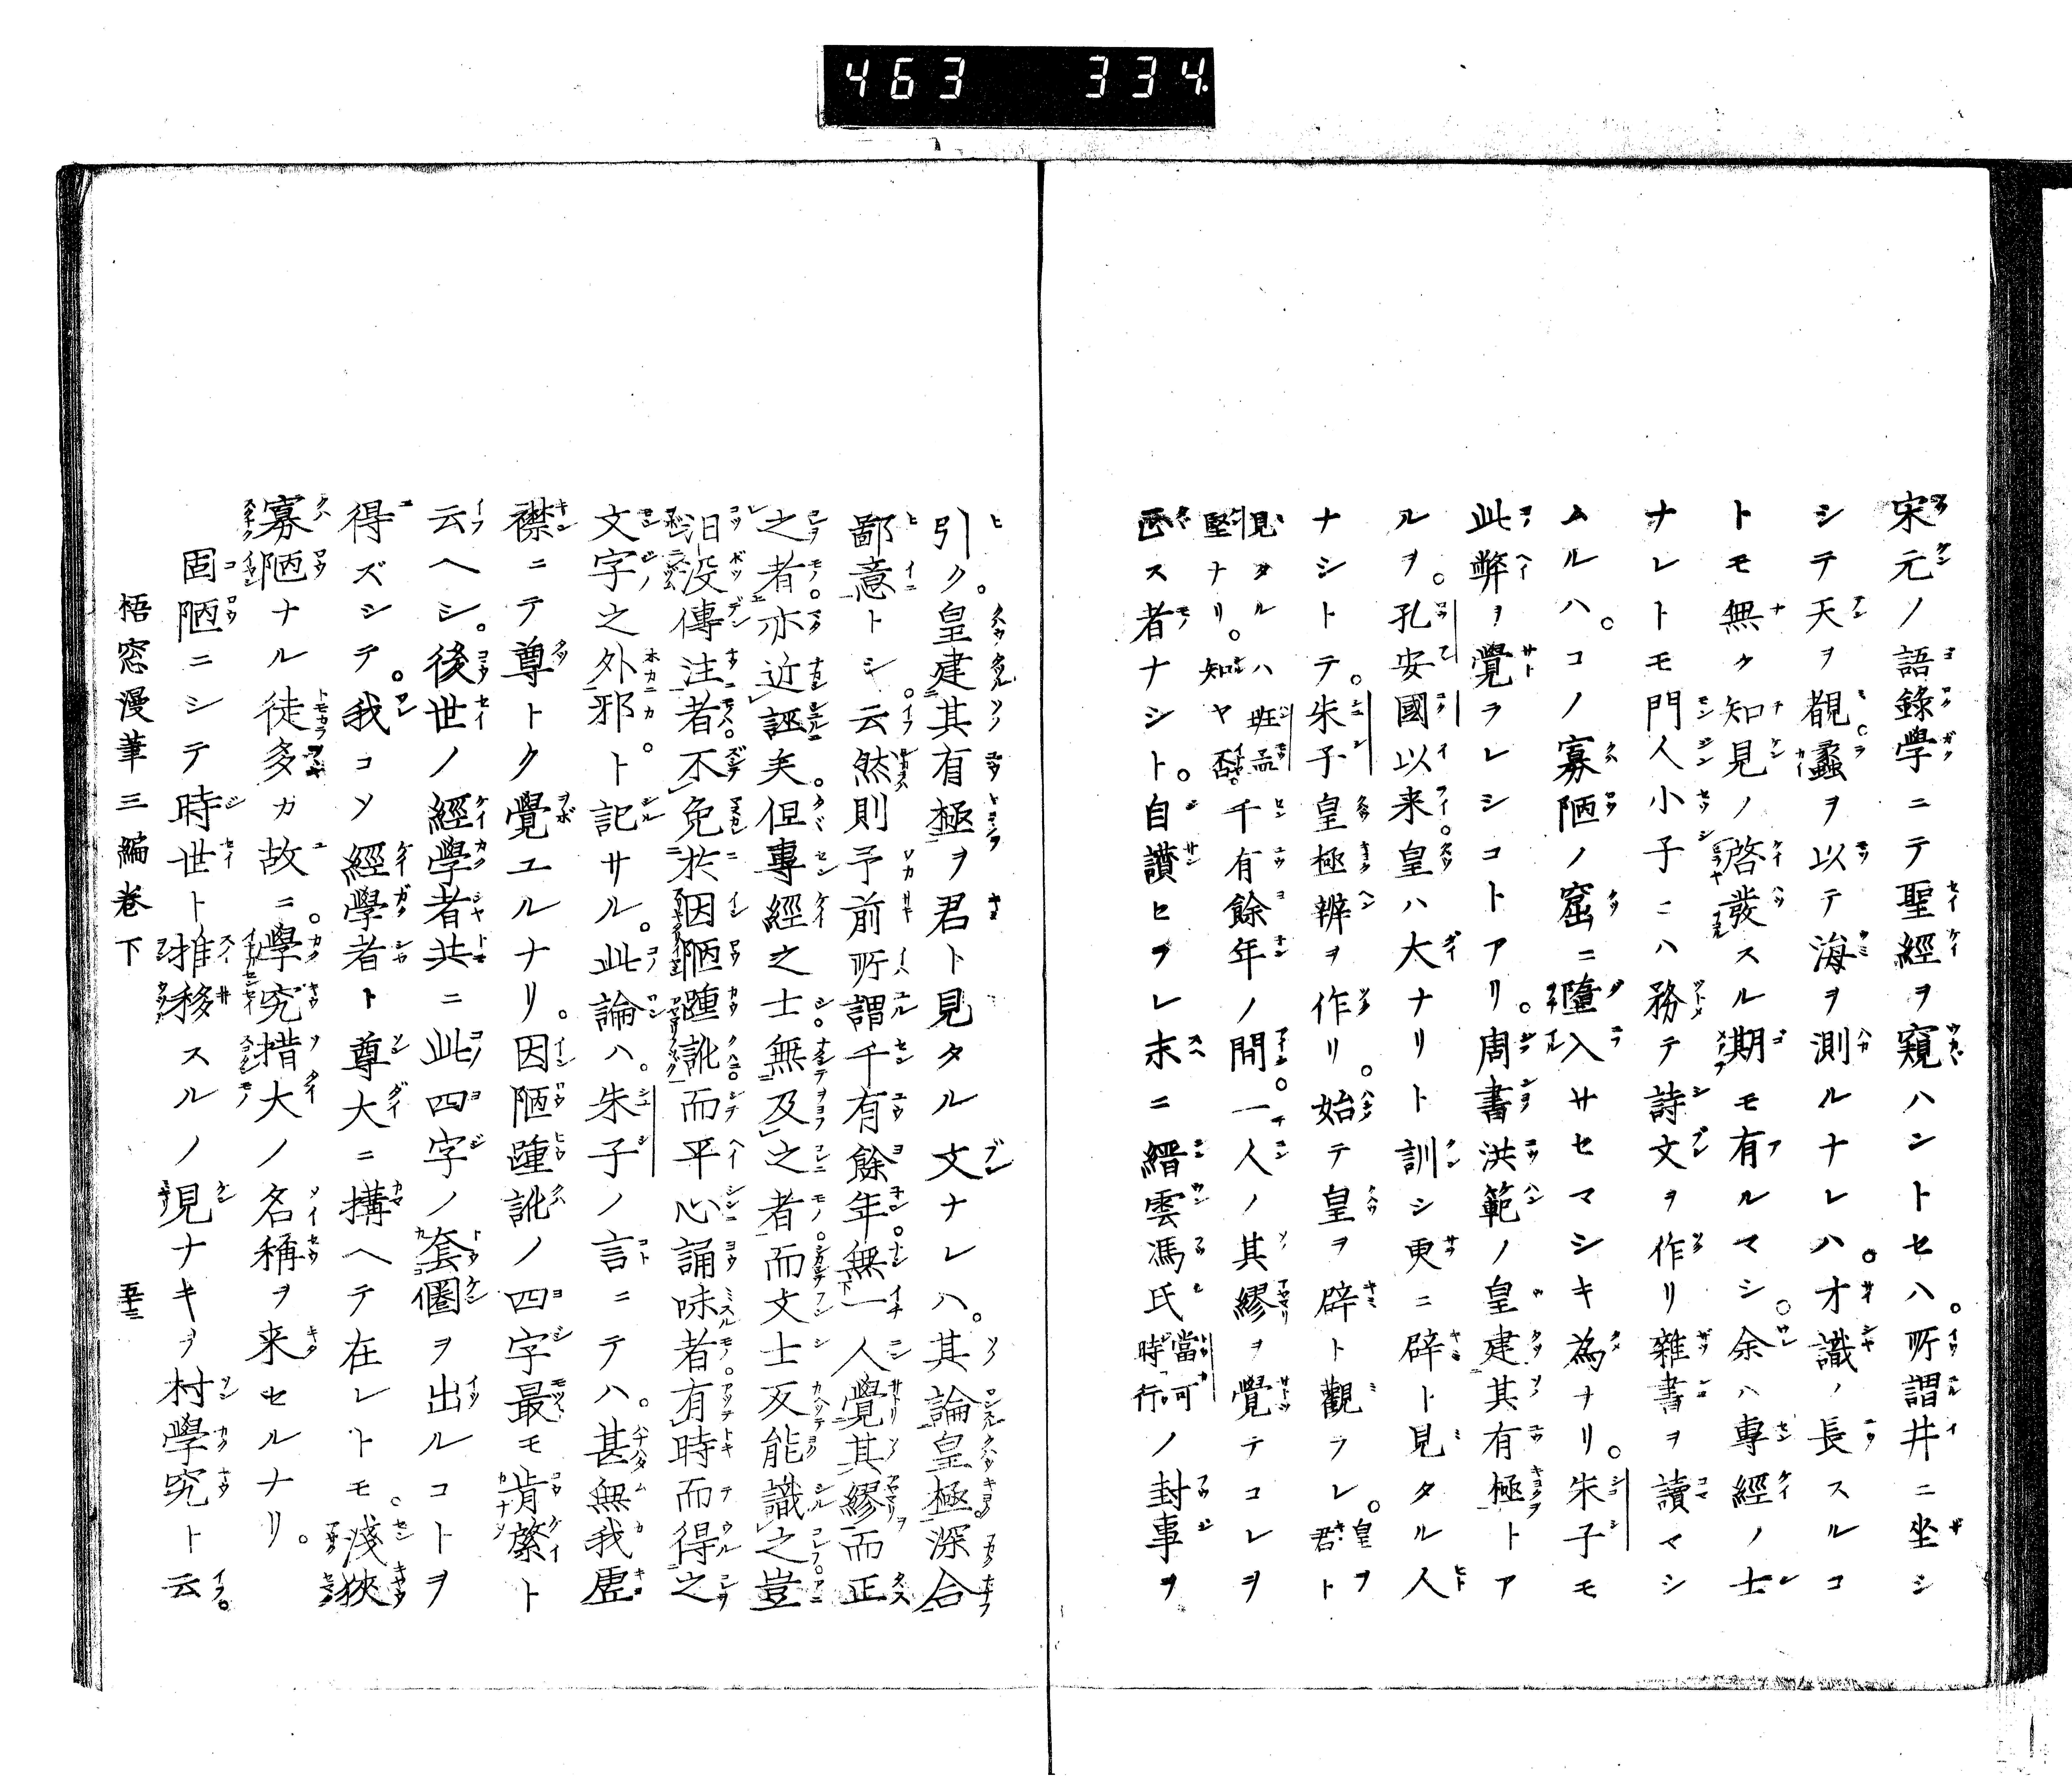 463 334.
宋元ノ語錄學ニテ聖經ヲ窺ハントセハ。所謂井ニ坐シ
シテ天ヲ觀蠡ヲ以テ海ヲ測ルナレハ。才識ノ長スルコ
トモ無ク知見ノ啓發スル期モ有ルマシ。余ハ專經ノ士
ナレトモ門人小子ニハ務テ詩文ヲ作リ雜書ヲ讀マシ
ムルハ。コノ寡陋ノ窟ニ墮入サセマシキ為ナリ。朱子モ
此弊ヲ覺ラレシコトアリ。周書洪範ノ皇建其有極トア
ルヲ。孔安國以来皇ハ大ナリト訓シ更ニ辟ト見タル人
ナシトテ。朱子皇極辨ヲ作リ。始テ皇ヲ辟ト觀ラレ。皇ヲ君ト
見タルハ班孟堅ナリ。知ヤ否千有餘年ノ間。一人ノ其繆ヲ覺テコレヲ
正ス者ナシト。自讚セラレ末ニ縉雲馮氏當可時行ノ封事ヲ
引ク。皇建其有極ヲ君ト見タル文ナレハ。其論皇極深合
鄙意トシ。云然則予前所謂千有餘年無一人覺其繆而正
之者亦近誣矣。但專經之士無及之者而文士反能識之豈
汨沒傳注者不免於因陋踵訛而平心誦味者有時而得之
文字之外邪。ト記サル。此論ハ。朱子ノ言ニテハ。甚無我虛
襟ニテ尊トク覺ユルナリ。因陋踵訛ノ四字最モ肯綮ト
云ヘシ。後世ノ經學者共ニ此四字ノ套圈ヲ出ルコトヲ
得ズシテ。我コソ經學者ト尊大ニ搆ヘテ在レトモ。淺狹
寡陋ナル徒多カ故ニ。學究措大ノ名稱ヲ来セルナリ。
固陋ニシテ時世ト推移スルノ見ナキヲ村學究ト云。
梧窓漫筆三編卷下